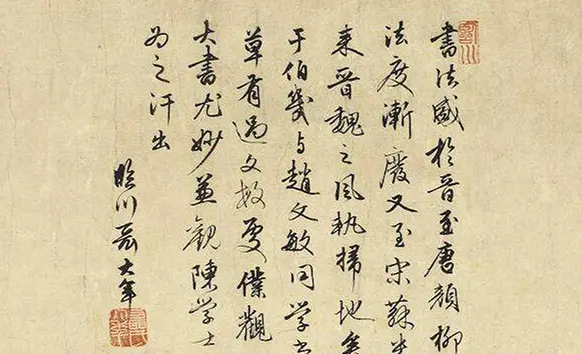 書法盛於晉至唐顏柳
法度漸廢又至宋蘇米
來晉魏之風執掃地矣
于伯幾与趙文敏同学
草有過文敏處僕觀
大書尤妙並觀陳学士
為之汗出
臨川聶大年